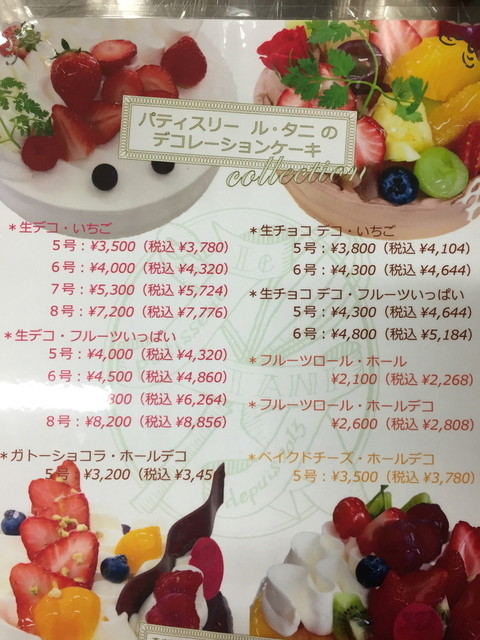 パティスリー ル・タニ の
デコレーションケーキ
collection
＊生デコ・いちご
5号：¥3,500（税込 ¥3,780）
6号：¥4,000（税込 ¥4,320）
7号：¥5,300（税込 ¥5,724）
8号：¥7,200（税込 ¥7,776）
＊生デコ・フルーツいっぱい
5号：¥4,000（税込 ¥4,320）
6号：¥4,500（税込 ¥4,860）
800（税込 ¥6,264）
8号：¥8,200（税込 ¥8,856）
＊ガトーショコラ・ホールデコ
5号：¥3,200（税込 ¥3,45
＊生チョコ デコ・いちご
5号：¥3,800（税込 ¥4,104）
6号：¥4,300（税込 ¥4,644）
＊生チョコ デコ・フルーツいっぱい
5号：¥4,300（税込 ¥4,644）
6号：¥4,800（税込 ¥5,184）
＊フルーツロール・ホール
¥2,100（税込 ¥2,268）
＊フルーツロール・ホールデコ
¥2,600（税込 ¥2,808）
＊ベイクドチーズ・ホールデコ
5号：¥3,500（税込 ¥3,780）
depuis 2013